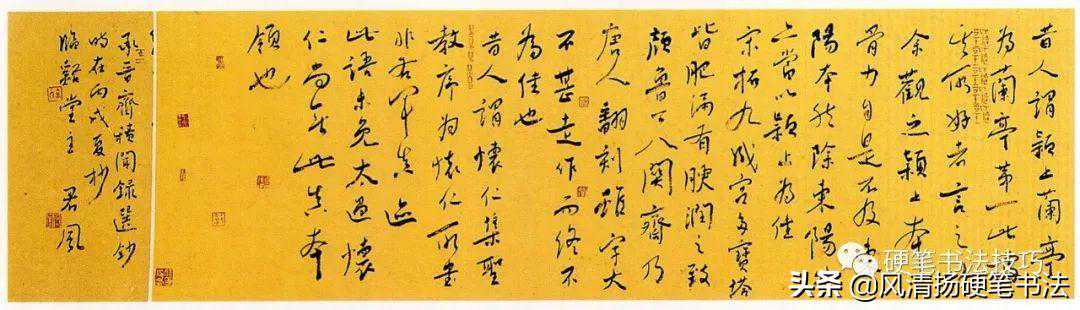 昔人謂潁上蘭亭
為蘭亭第一此
所好者言之
余觀之潁上本
骨力自是不及東
陽本然除東陽
亦當以潁上為佳
宋拓九成宮多寶塔
皆肥滿有腴潤之致
顏魯公八關齋乃
唐人翻刻頭字大
不甚走作而終不
為佳也
昔人謂懷仁集聖
教序為懷仁所書
非右軍真迹
此語未免太過懷
仁尚無此真本
領也
承晉齋積聞錄選鈔
時在丙戌夏杪
臨谿堂主
硬笔书法技巧
头条 @风清扬硬笔书法